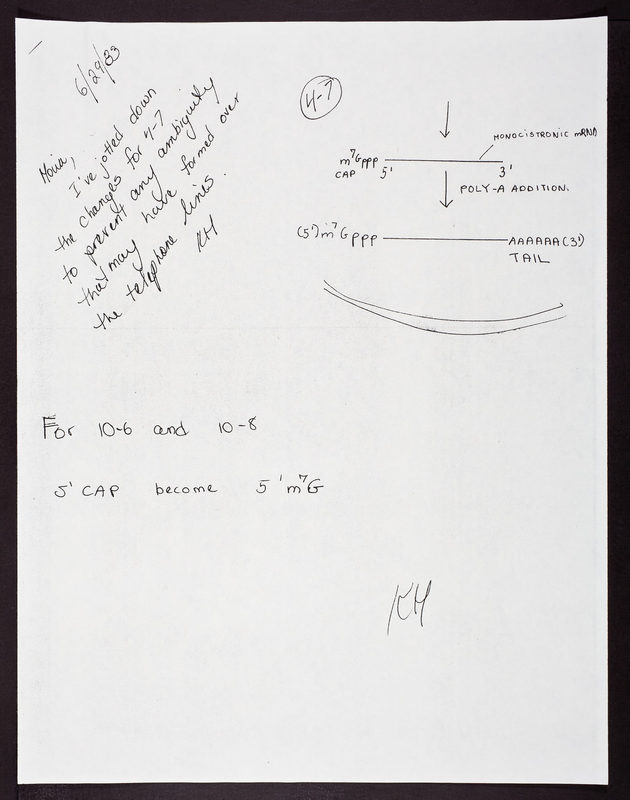 6/29/83
I've jotted down
the changes for 4-7
to prevent any ambiguity
that may have formed over
the telephone lines.
KH
4-7
MONOCISTRONIC mRNA
m⁷Gppp
CAP 5' 3'
POLY-A ADDITION.
(5')m⁷Gppp AAAAAA(3')
TAIL
For 10-6 and 10-8
5' CAP become 5' m⁷G
KH